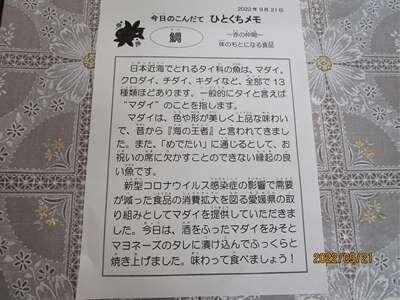 2022年9月21日
今日のこんだて ひとくちメモ
鯛
～赤の仲間～
体のもとになる食品
日本近海でとれるタイ科の魚は、マダイ、
クロダイ、チダイ、キダイなど、全部で13
種類ほどあります。一般的にタイと言えば
"マダイ"のことを指します。
マダイは、色や形が美しく上品な味わい
で、昔から『海の王者』と言われてきまし
た。また、「めでたい」に通じるとして、お
祝いの席に欠かすことのできない縁起の良
い魚です。
新型コロナウイルス感染症の影響で需要
が減った食品の消費拡大を図る愛媛県の取
り組みとしてマダイを提供していただきま
した。今日は、酒をふったマダイをみそと
マヨネーズのタレに漬け込んでふっくらと
焼き上げました。味わって食べましょう！
2022/09/21